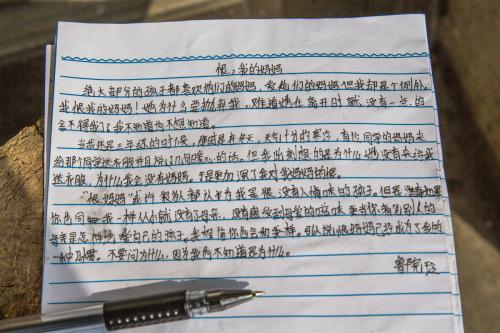 恨，我的妈妈
绝大部分的孩子都喜欢他们的妈妈，爱他们的妈妈但我却是个例外。
我恨我的妈妈！她为什么要抛弃我，难道她在离开时就没有一点的
舍不得我吗？我不知道也不想知道。
当我还是二年级的时候，那是在冬天，天气十分的寒冷，有位同学的妈妈来
给那个同学送衣服并且说了几句暖心的话。但我当时想的是为什么她没有来给我
送衣服，为什么我会没有妈妈，于是更加深了我对我妈妈的恨。
"恨妈妈"或许很多人都认为我是很没有人情味的孩子。但是
你也同我一样从小就没有了母亲，没有感受到母爱的
母亲是怎样 爱自己的孩子。我相信你也会和我一样。可以说，恨妈妈已经成为了我的
一种习惯。不要问为什么，因为我也不知道是为什么。